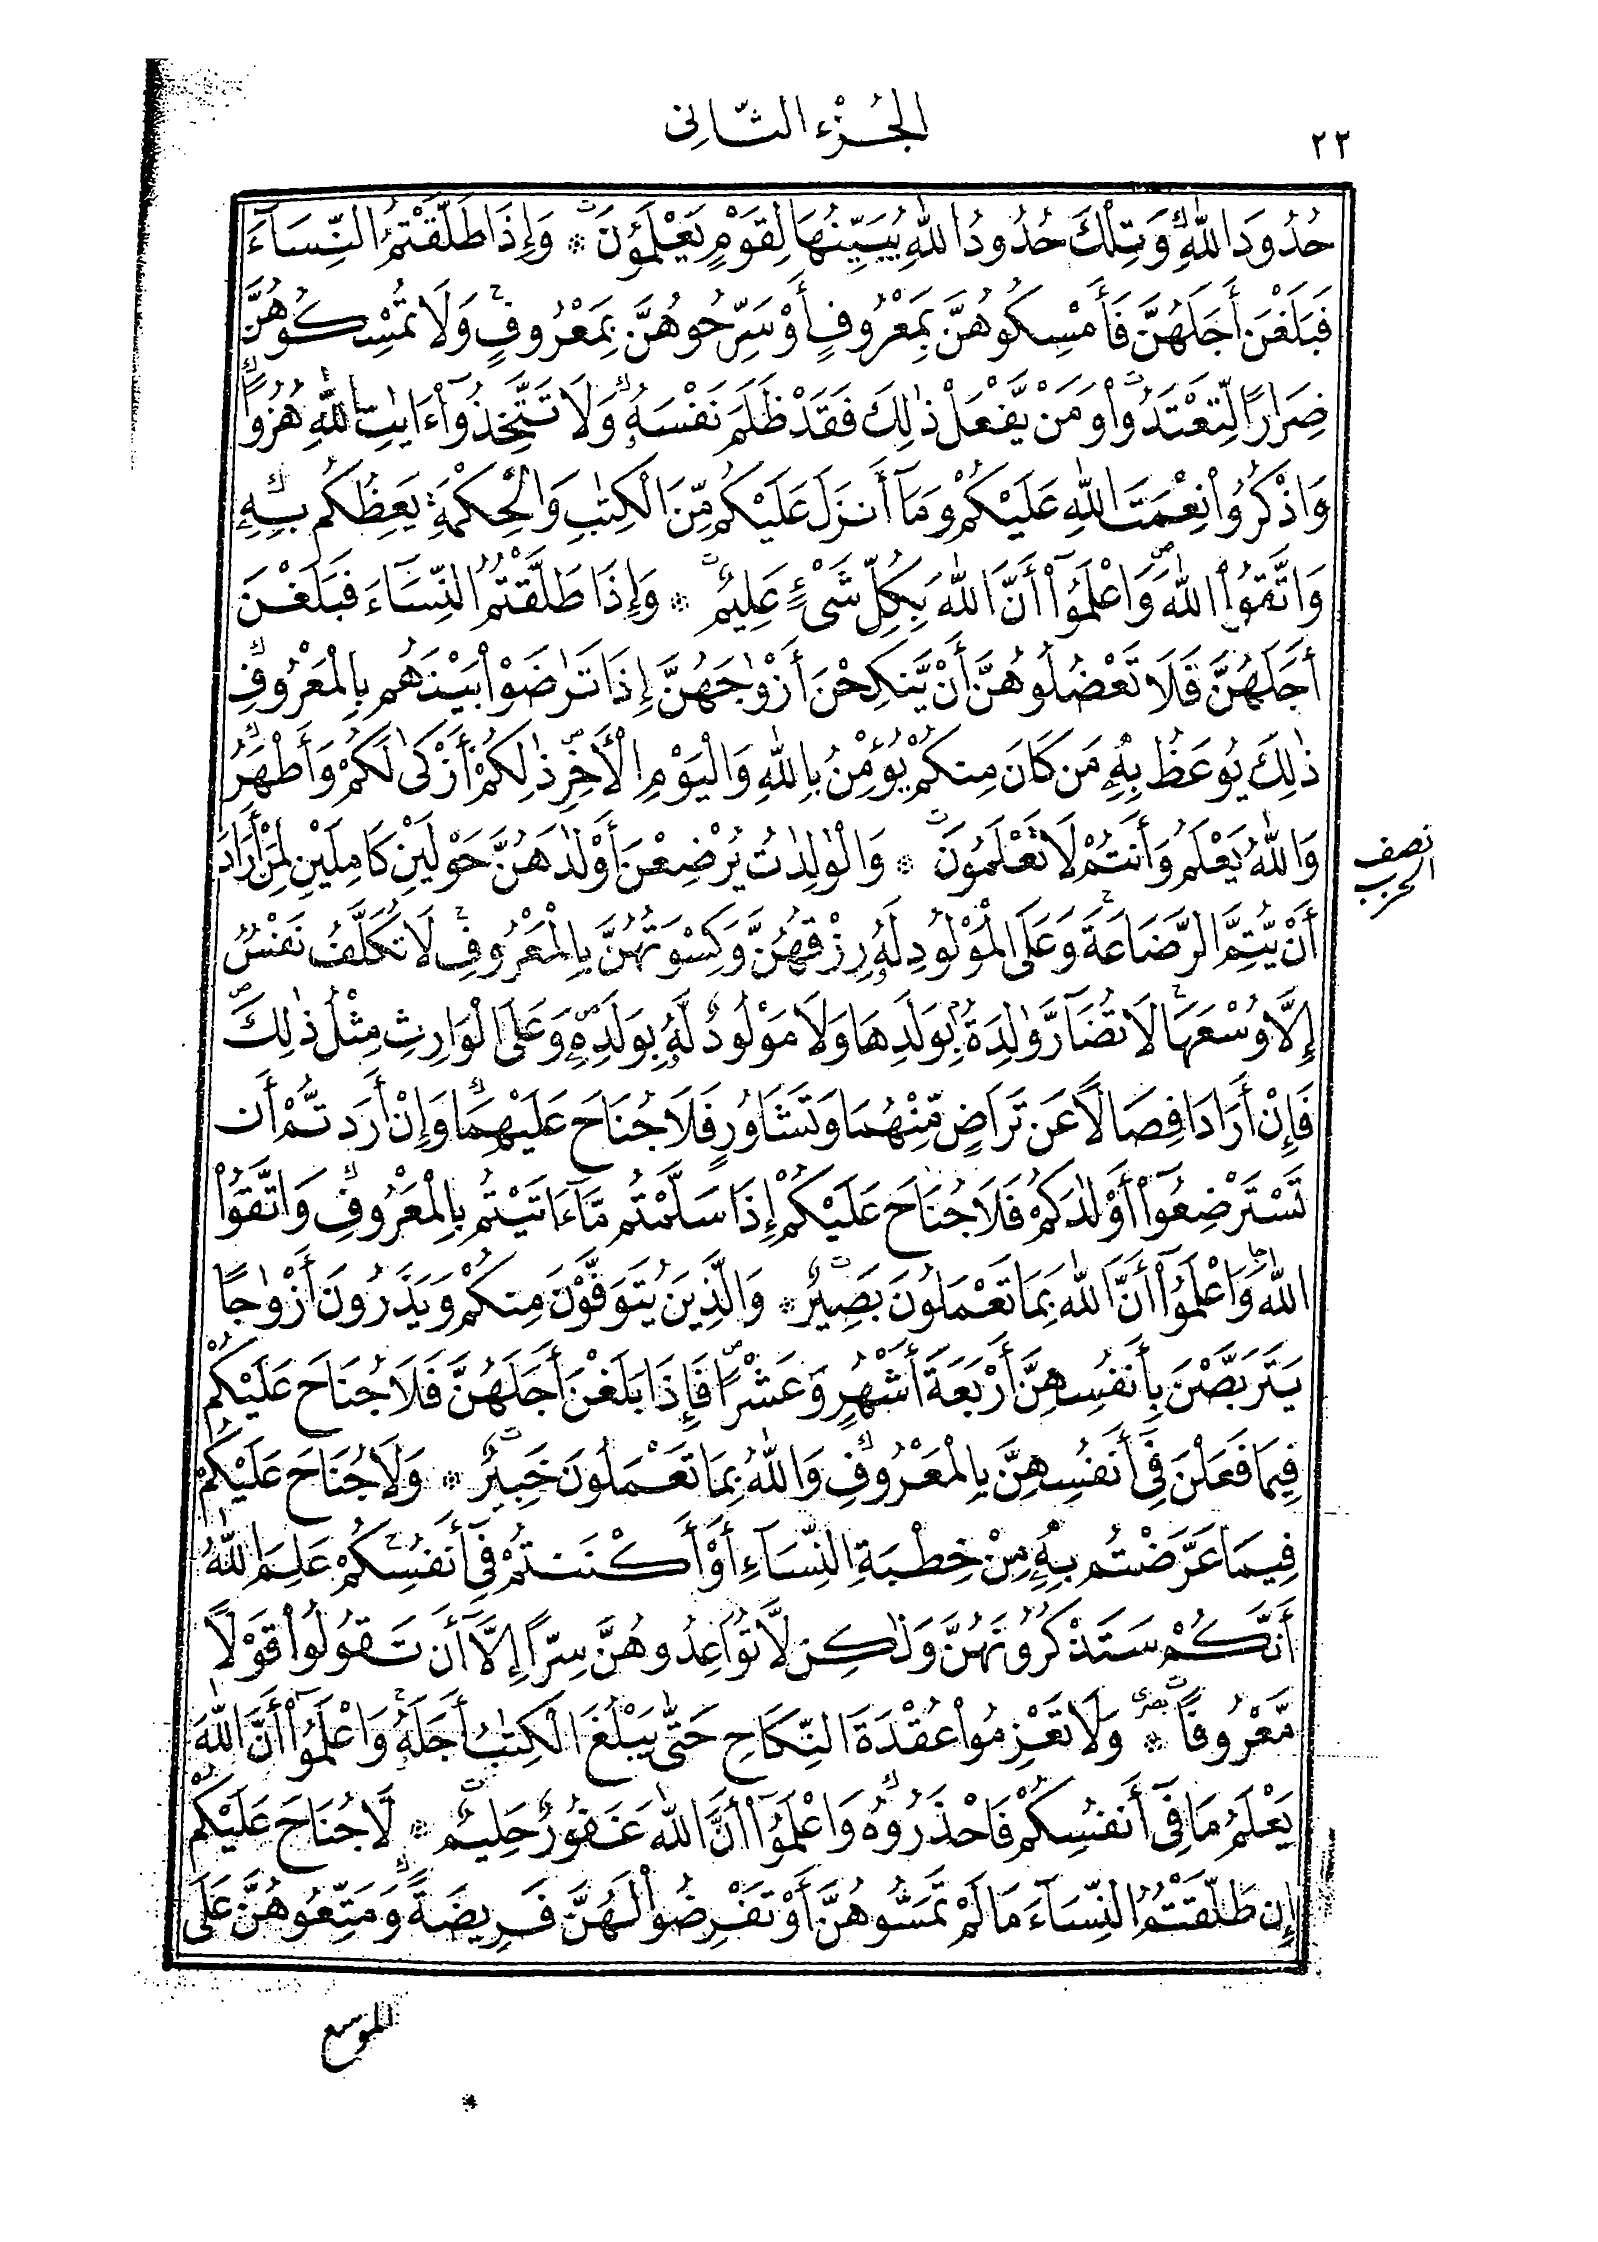 ٢٢
الجُزْءِ الثَّانِى
حُدُودَ اللَّهِ وَتِلْكَ حُدُودُ اللَّهِ يُبَيِّنُهَا لِقَوْمٍ يَعْلَمُونَ * وَإِذَا طَلَّقْتُمُ النِّسَآءَ
فَبَلَغْنَ أَجَلَهُنَّ فَأَمْسِكُوهُنَّ بِمَعْرُوفٍ أَوْ سَرِّحُوهُنَّ بِمَعْرُوفٍ وَلَا تُمْسِكُوهُنَّ
ضِرَارًا لِّتَعْتَدُوا۟ وَمَنْ يَّفْعَلْ ذٰلِكَ فَقَدْ ظَلَمَ نَفْسَهُۥ وَلَا تَتَّخِذُوٓا۟ ءَايٰتِ اللَّهِ هُزُوًا
وَاذْكُرُوا۟ نِعْمَتَ اللَّهِ عَلَيْكُمْ وَمَآ أَنزَلَ عَلَيْكُم مِّنَ الْكِتٰبِ وَالْحِكْمَةِ يَعِظُكُم بِهِۦ
وَاتَّقُوا۟ اللَّهَ وَاعْلَمُوٓا۟ أَنَّ اللَّهَ بِكُلِّ شَىْءٍ عَلِيمٌ * وَإِذَا طَلَّقْتُمُ النِّسَآءَ فَبَلَغْنَ
أَجَلَهُنَّ فَلَا تَعْضُلُوهُنَّ أَنْ يَّنكِحْنَ أَزْوٰجَهُنَّ إِذَا تَرٰضَوْا۟ بَيْنَهُم بِالْمَعْرُوفِ
ذٰلِكَ يُوعَظُ بِهِۦ مَن كَانَ مِنكُمْ يُؤْمِنُ بِاللَّهِ وَالْيَوْمِ الْأَخِرِ ذٰلِكُمْ أَزْكَىٰ لَكُمْ وَأَطْهَرُ
وَاللَّهُ يَعْلَمُ وَأَنتُمْ لَا تَعْلَمُونَ * وَالْوٰلِدٰتُ يُرْضِعْنَ أَوْلٰدَهُنَّ حَوْلَيْنِ كَامِلَيْنِ لِمَنْ أَرَادَ
نصف
الحزب
أَنْ يُّتِمَّ الرَّضَاعَةَ وَعَلَى الْمَوْلُودِ لَهُۥ رِزْقُهُنَّ وَكِسْوَتُهُنَّ بِالْمَعْرُوفِ لَا تُكَلَّفُ نَفْسٌ
إِلَّا وُسْعَهَا لَا تُضَآرَّ وٰلِدَةٌ بِوَلَدِهَا وَلَا مَوْلُودٌ لَّهُۥ بِوَلَدِهِۦ وَعَلَى الْوَارِثِ مِثْلُ ذٰلِكَ
فَإِنْ أَرَادَا فِصَالًا عَن تَرَاضٍ مِّنْهُمَا وَتَشَاوُرٍ فَلَا جُنَاحَ عَلَيْهِمَا وَإِنْ أَرَدتُّمْ أَن
تَسْتَرْضِعُوٓا۟ أَوْلٰدَكُمْ فَلَا جُنَاحَ عَلَيْكُمْ إِذَا سَلَّمْتُم مَّآ ءَاتَيْتُم بِالْمَعْرُوفِ وَاتَّقُوا۟
اللَّهَ وَاعْلَمُوٓا۟ أَنَّ اللَّهَ بِمَا تَعْمَلُونَ بَصِيرٌ * وَالَّذِينَ يُتَوَفَّوْنَ مِنكُمْ وَيَذَرُونَ أَزْوٰجًا
يَتَرَبَّصْنَ بِأَنفُسِهِنَّ أَرْبَعَةَ أَشْهُرٍ وَعَشْرًا فَإِذَا بَلَغْنَ أَجَلَهُنَّ فَلَا جُنَاحَ عَلَيْكُمْ
فِيمَا فَعَلْنَ فِىٓ أَنفُسِهِنَّ بِالْمَعْرُوفِ وَاللَّهُ بِمَا تَعْمَلُونَ خَبِيرٌ * وَلَا جُنَاحَ عَلَيْكُمْ
فِيمَا عَرَّضْتُم بِهِۦ مِنْ خِطْبَةِ النِّسَآءِ أَوْ أَكْنَنتُمْ فِىٓ أَنفُسِكُمْ عَلِمَ اللَّهُ
أَنَّكُمْ سَتَذْكُرُونَهُنَّ وَلٰكِن لَّا تُوَاعِدُوهُنَّ سِرًّا إِلَّآ أَن تَقُولُوا۟ قَوْلًا
مَّعْرُوفًا * وَلَا تَعْزِمُوا۟ عُقْدَةَ النِّكَاحِ حَتَّىٰ يَبْلُغَ الْكِتٰبُ أَجَلَهُۥ وَاعْلَمُوٓا۟ أَنَّ اللَّهَ
يَعْلَمُ مَا فِىٓ أَنفُسِكُمْ فَاحْذَرُوهُ وَاعْلَمُوٓا۟ أَنَّ اللَّهَ غَفُورٌ حَلِيمٌ * لَّا جُنَاحَ عَلَيْكُمْ
إِن طَلَّقْتُمُ النِّسَآءَ مَا لَمْ تَمَسُّوهُنَّ أَوْ تَفْرِضُوا۟ لَهُنَّ فَرِيضَةً وَمَتِّعُوهُنَّ عَلَى
الموسع